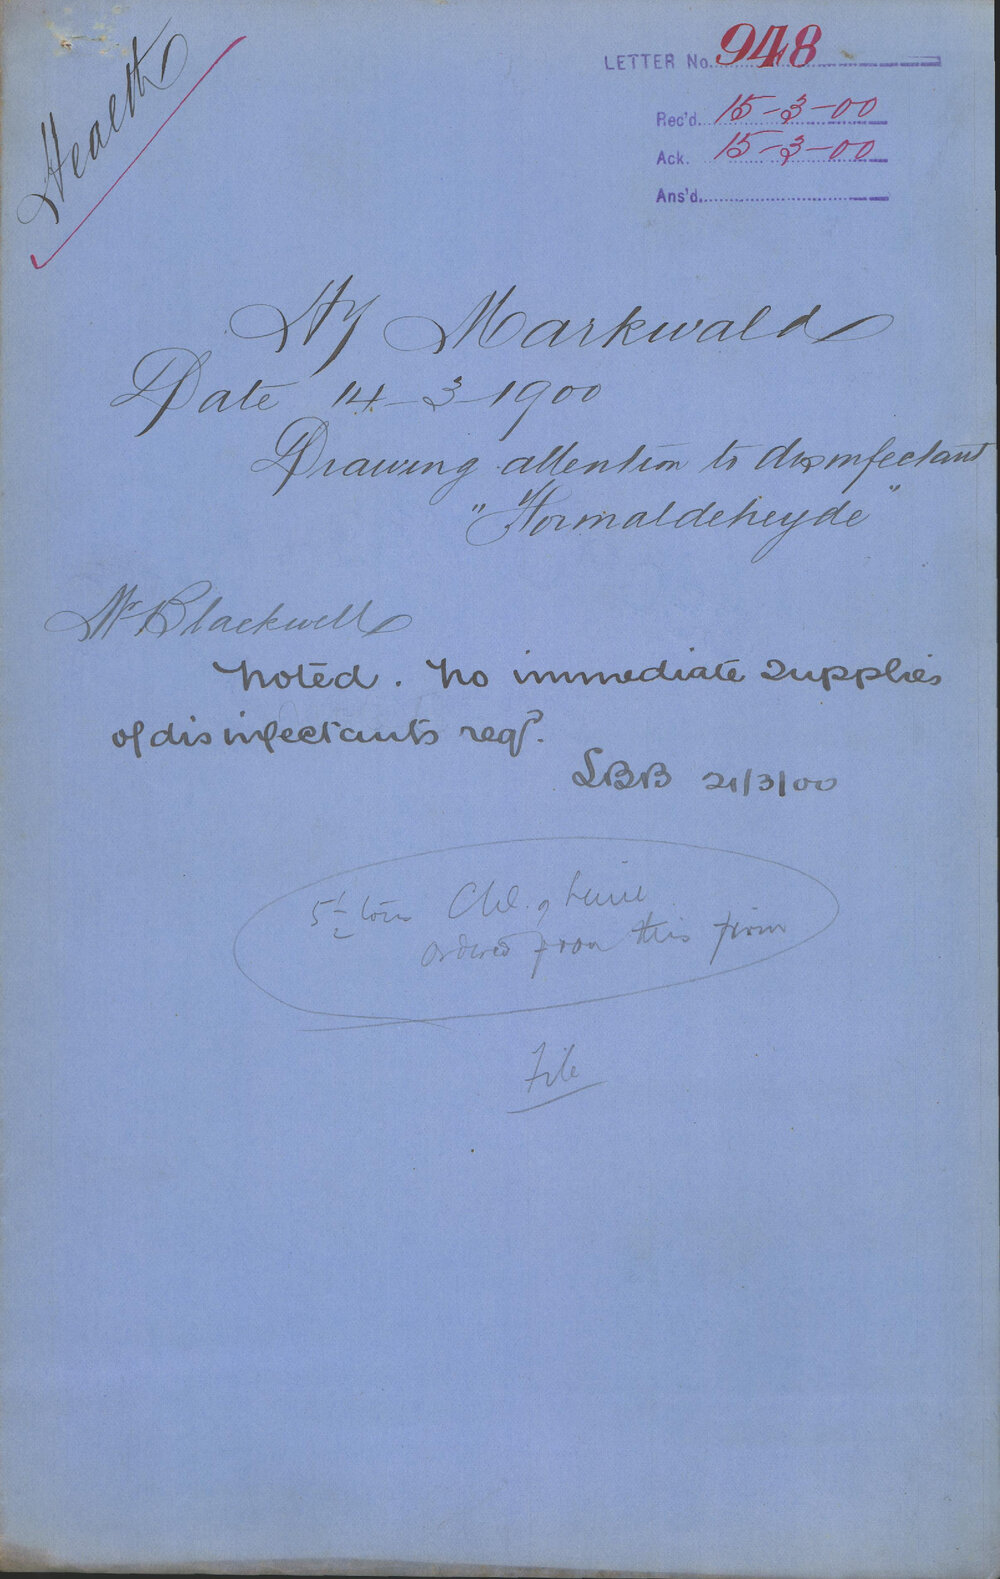 Health
LETTER No. 948
Rec'd. 15-3-00
Ack. 15-3-00
Ans'd.
Hy Markwald
Date 14-3-1900
Drawing attention to disinfectant
"Formaldeheyde"
Mr Blackwell
Noted. No immediate supplies
of disinfectants reqd.
LBB 21/3/00
5½ tons Chl. of Lime
ordered from this firm
File